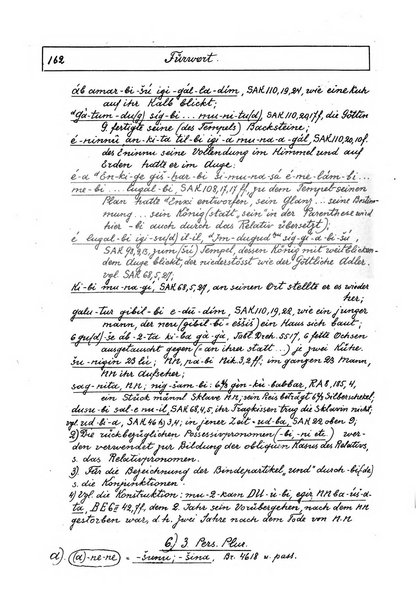 162 Fürwort.
áb amar-bi-šú igi-gál-la-dím, SAK.110,19,24, wie eine Kuh
auf ihr Kalb blickt;
ᵈGà-tum-du(g) sig-bi ... mu-ni-tu(d), SAK.110,20,17ff, die Göttin
G. fertigte seine (des Tempels) Backsteine;
é-ninnû an-ki-ta til-bi igi-a mu-na-gál, SAK.110,20,10f.
des Eninnu seine Vollendung im Himmel und auf
Erden hatte er im Auge;
é-a ᵈEn-ki-ge giš-ḫar-bi si-mu-na-sá é-me-lám-bi ...
me-bi ... lugal-bi, SAK.108,17,17 ff, zu dem Tempel seinen
Plan hatte ᵈEnki entworfen, sein Glanz ... seine Bestim-
mung ... sein König (statt „sein“ in der Parenthese wird
hier -bi auch durch das Relativ übersetzt);
é lugal-bi igi-su(d) il-il, ᵈIm-dugud ᵐᵘšᵉⁿ sig-gi-a-bi-šú,
dem Auge blickt, der niederstösst wie der Göttliche Adler
vgl. SAK 68,5,27;
Ki-bi mu-na-gi, SAK 68,5,27, an seinen Ort stellte er es wieder
her;
galu-tur gibil-bi é-dū-dím, SAK.110,19,22, wie ein junger
mann, der neu (gibil-bi = eššiš) ein Haus sich baut;
6 gu(d)-šé áb-2-ta ki-ba gà-gà, Tabl. Dreh. 5517, 6 fette Ochsen
ausgetauscht gegen (= an ihrer statt ...) je zwei Kühe.
šu-nigin 23 lú; NN, pa-bi Nik. 3,2 ff; im ganzen 23 Mann,
NN ihr Aufseher;
sag-nita, NN; nig-šam-bi 6⅔ gín-kù-bubbar, RA 8,185,4,
ein Stück männl Sklave NN, sein Preis beträgt 6⅔ Silberschekel;
dusu-bi sal-e nu-il, SAK.68,4,5, ihr Tragkissen trug die Sklavin nicht;
vgl. ud-bi-a, SAK.46 b) 3,4; in jener Zeit - ud-ba, SAK 22 oben 9;
2) Die rückbezüglichen Possessivpronomen (-bi-ni etc.) wer-
den verwendet zur Bildung der obliquen Kasus des Relativs,
s. das Relativpronomen.
3) Für die Bezeichnung der Bindepartikel „und“ durch -bi(da)
s. die Konjunktionen.
4) Vgl. die Konstruktion: mu-2-kam DU-ú-bi, egir NN ba-úš-a-
ta, BE 6 II 42,7f, dem 2. Jahr sein Vorübergehen, nach dem NN
gestorben war, d.h. zwei Jahre nach dem Tode von N.N
6) 3. Pers. Plur.
a) (a)-ne-ne = -šunu; -šina, Br. 4618 u. pass.